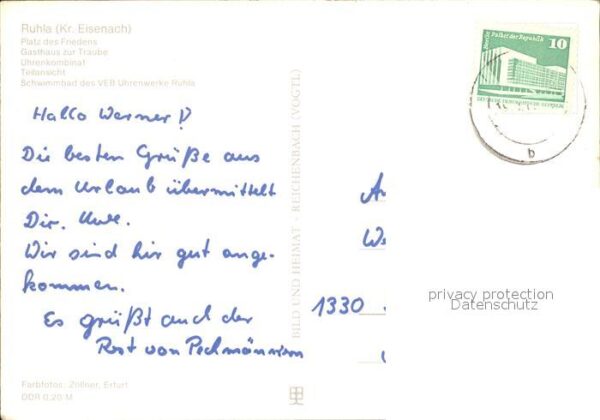 Ruhla (Kr. Eisenach)
Platz des Friedens
Gasthaus zur Traube
Uhrenkombinat
Teilansicht
Schwimmbad des VEB Uhrenwerke Ruhla
Berlin Palast der Republik
10
DEUTSCHE DEMOKRATISCHE REPUBLIK
b
Hallo Werner!
Die besten Grüße aus
dem Urlaub übermittelt
Dir, Uwe.
Wir sind hir gut ange-
kommen.
Es grüßt auch der
Rest von
BILD UND HEIMAT · REICHENBACH (VOGTL)
1330
privacy protection
Datenschutz
Farbfotos: Zollner, Erfurt
DDR 0,20 M